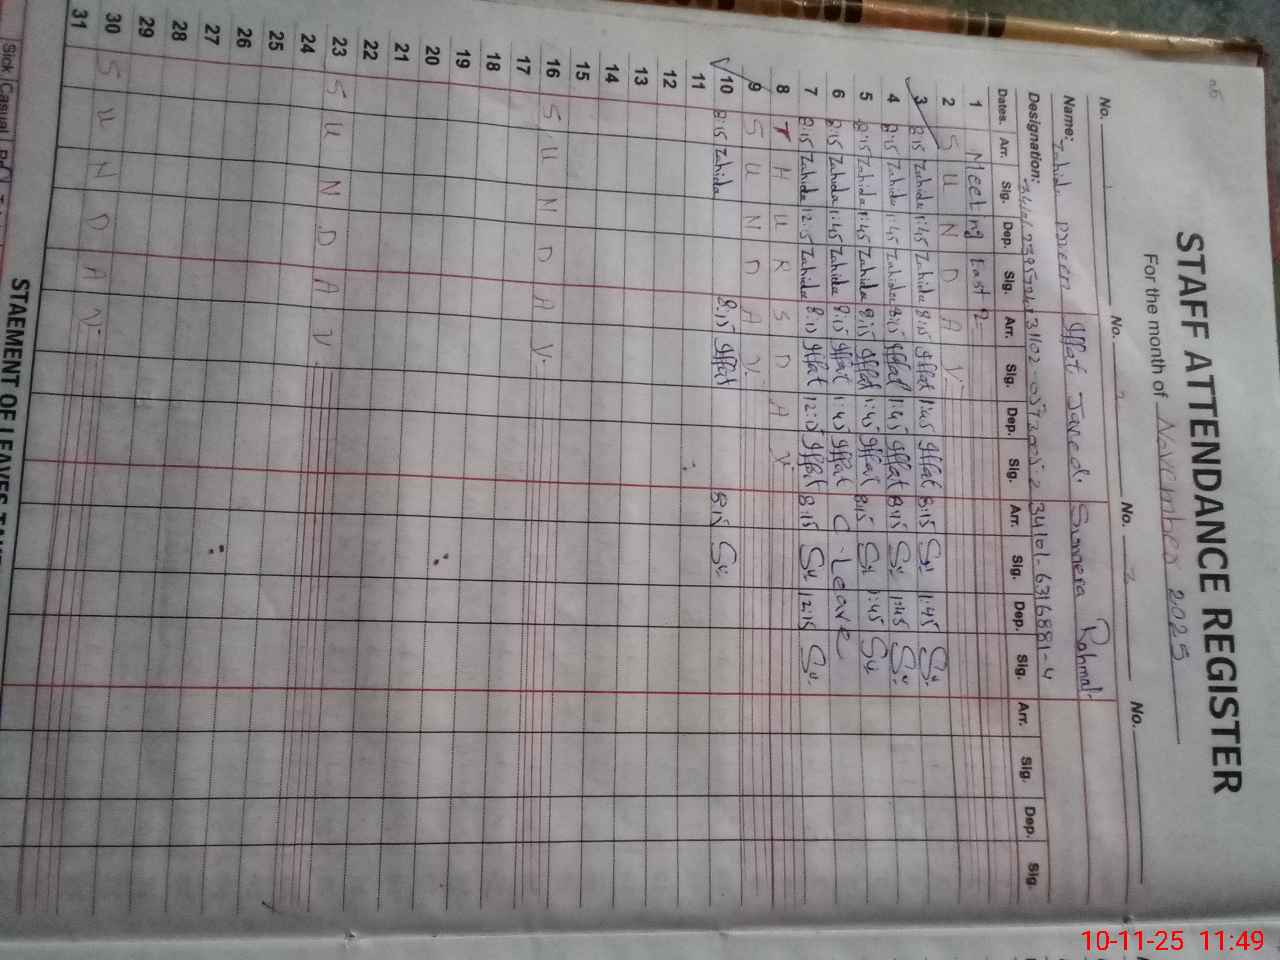 STAFF ATTENDANCE REGISTER
For the month of November 2025
No. No. No. No.
Name: Zahida Parveen Iffat Javed. Sumera Rahmat
Designation: 34101-6316881-4
Dates. Arr. Sig. Dep. Sig. Arr. Sig. Dep. Sig. Arr. Sig. Dep. Sig. Arr. Sig. Dep. Sig.
1 Meeting Last
2 SUNDAY
3 8:15 Zahida 1:45 Zahida 8:15 Iffat 1:45 Iffat 8:15 1:45
4 8:15 Zahida 1:45 Zahida 8:15 Iffat 1:45 Iffat 8:15 1:45
5 8:15 Zahida 1:45 Zahida 8:15 Iffat 1:45 Iffat 8:15 1:45
6 8:15 Zahida 1:45 Zahida 8:15 Iffat 1:45 Iffat C. Leave
7 8:15 Zahida 12:15 Zahida 8:15 Iffat 12:15 Iffat 8:15 12:15
8 THURSDAY
9 SUNDAY
10 8:15 Zahida 8:15 Iffat 8:15
11
12
13
14
15
16 SUNDAY
17
18
19
20
21
22
23 SUNDAY
24
25
26
27
28
29
30 SUNDAY
31
STAEMENT OF LEAVES
Sick Casual
10-11-25 11:49